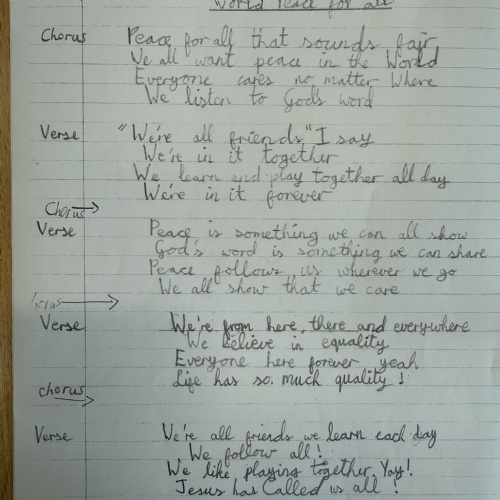 World Peace for all
Chorus Peace for all that sounds fair
We all want peace in the World
Everyone cares no matter where
We listen to God's word
Verse "We're all friends," I say
We're in it together
We learn and play together all day
We're in it forever
Chorus →
Verse Peace is something we can all show
God's word is something we can share
Peace follows us wherever we go
We all show that we care
Chorus →
Verse We're from here, there and everywhere
We Believe in equality
Everyone here forever yeah
Life has so much quality!
chorus →
Verse We're all friends we learn each day
We follow all!
We like playing together Yay!
Jesus has Called us all!